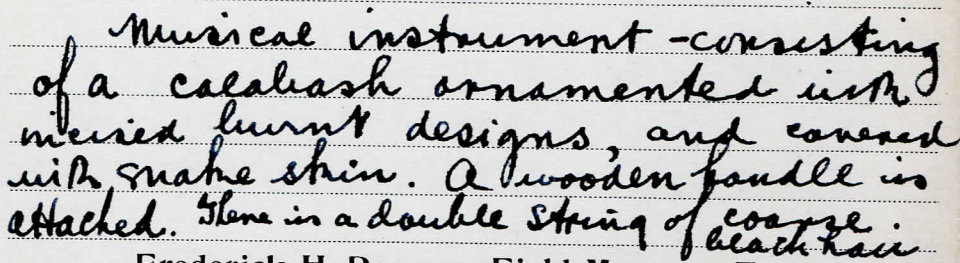 Musical instrument - consisting
of a calabash ornamented with
incised burnt designs, and covered
with snake skin. A wooden handle is
attached. There is a double string of coarse
black hair
Frederick H.